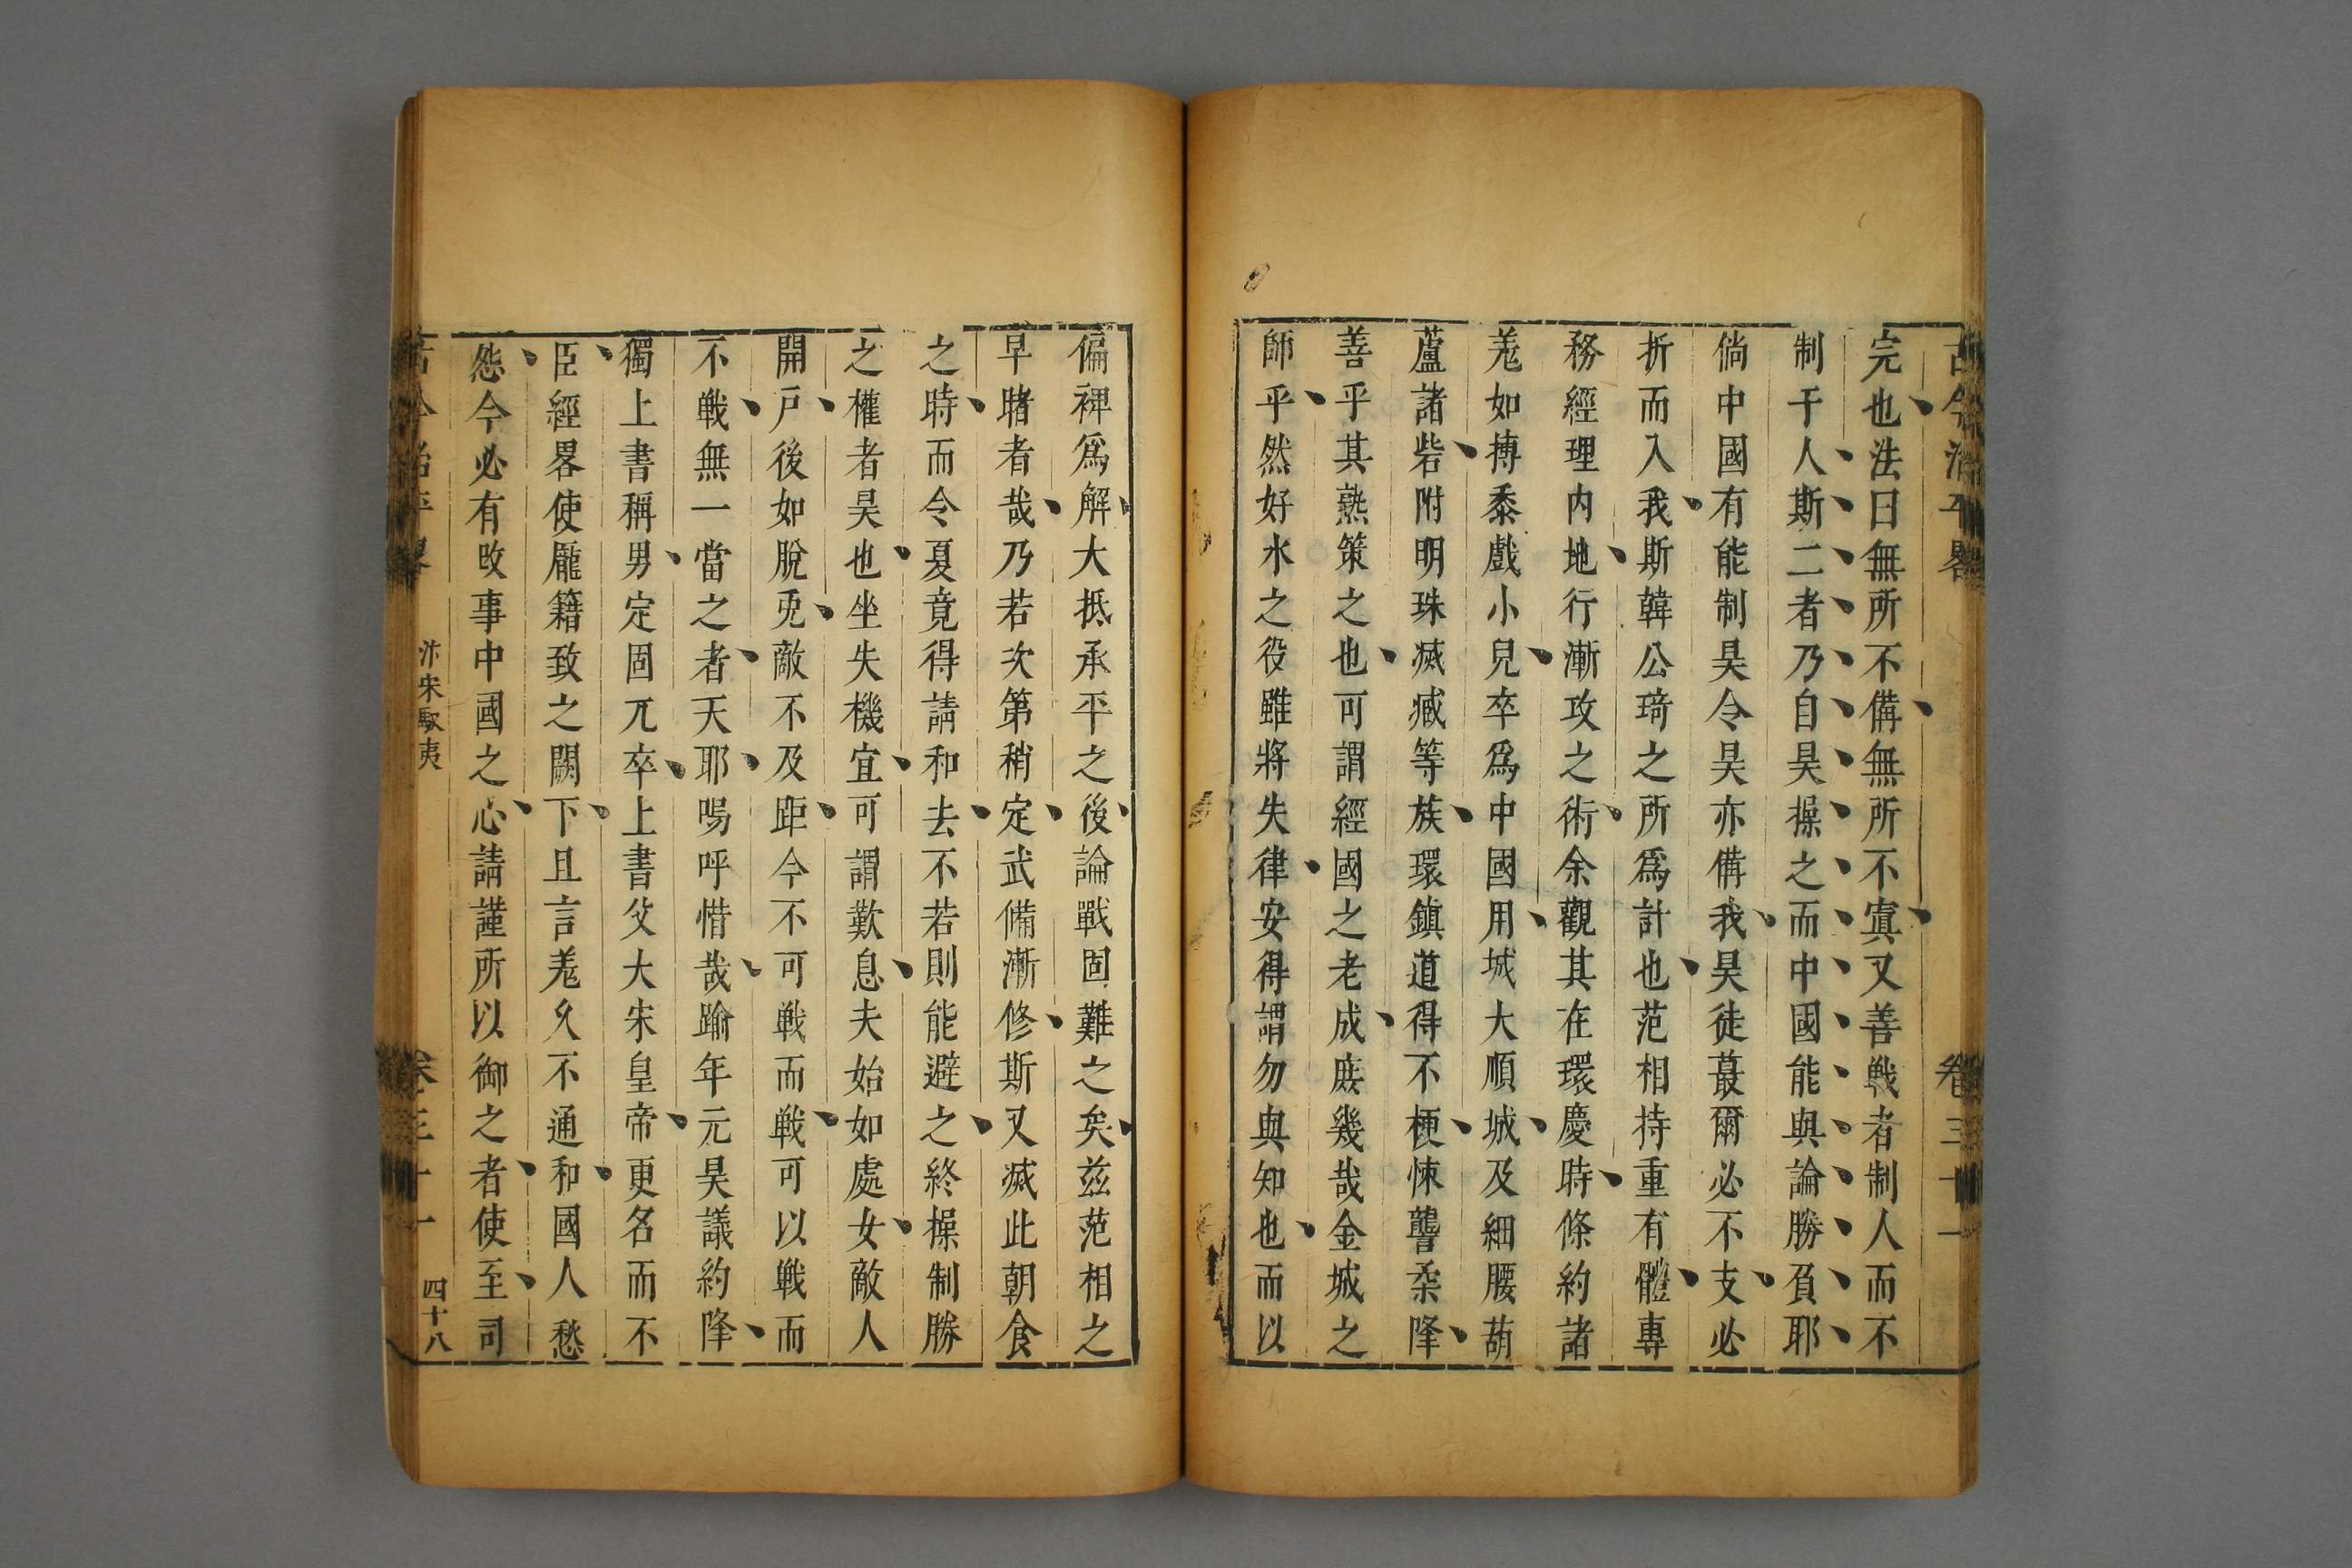 古今治平畧
卷三十一
完也法曰無所不備無所不寘又善戰者制人而不
制于人斯二者乃自昊操之而中國能與論勝負耶
倘中國有能制昊令昊亦備我昊徒蕞爾必不支必
折而入我斯韓公琦之所爲計也范相持重有體專
務經理内地行漸攻之術余觀其在環慶時條約諸
羗如摶黍戲小兒卒爲中國用城大順城及細腰葫
蘆諸砦附明珠滅臧等族環鎮道得不梗悚讋柔降
善乎其熟策之也可謂經國之老成庶幾哉金城之
師乎然好水之役雖將失律安得謂勿與知也而以
偏裨爲解大抵承平之後論戰固難之矣兹范相之
早睹者哉乃若次第稍定武備漸修斯又滅此朝食
之時而令夏竟得請和去不若則能避之終操制勝
之權者昊也坐失機宜可謂歎息夫始如處女敵人
開戸後如脫兎敵不及距今不可戰而戰可以戰而
不戰無一當之者天耶嗚呼惜哉踰年元昊議約降
獨上書稱男定固兀卒上書父大宋皇帝更名而不
臣經畧使龐籍致之闕下且言羗久不通和國人愁
怨今必有敃事中國之心請謹所以御之者使至司
古今治平畧
汴宋馭夷
卷三十一
四十八